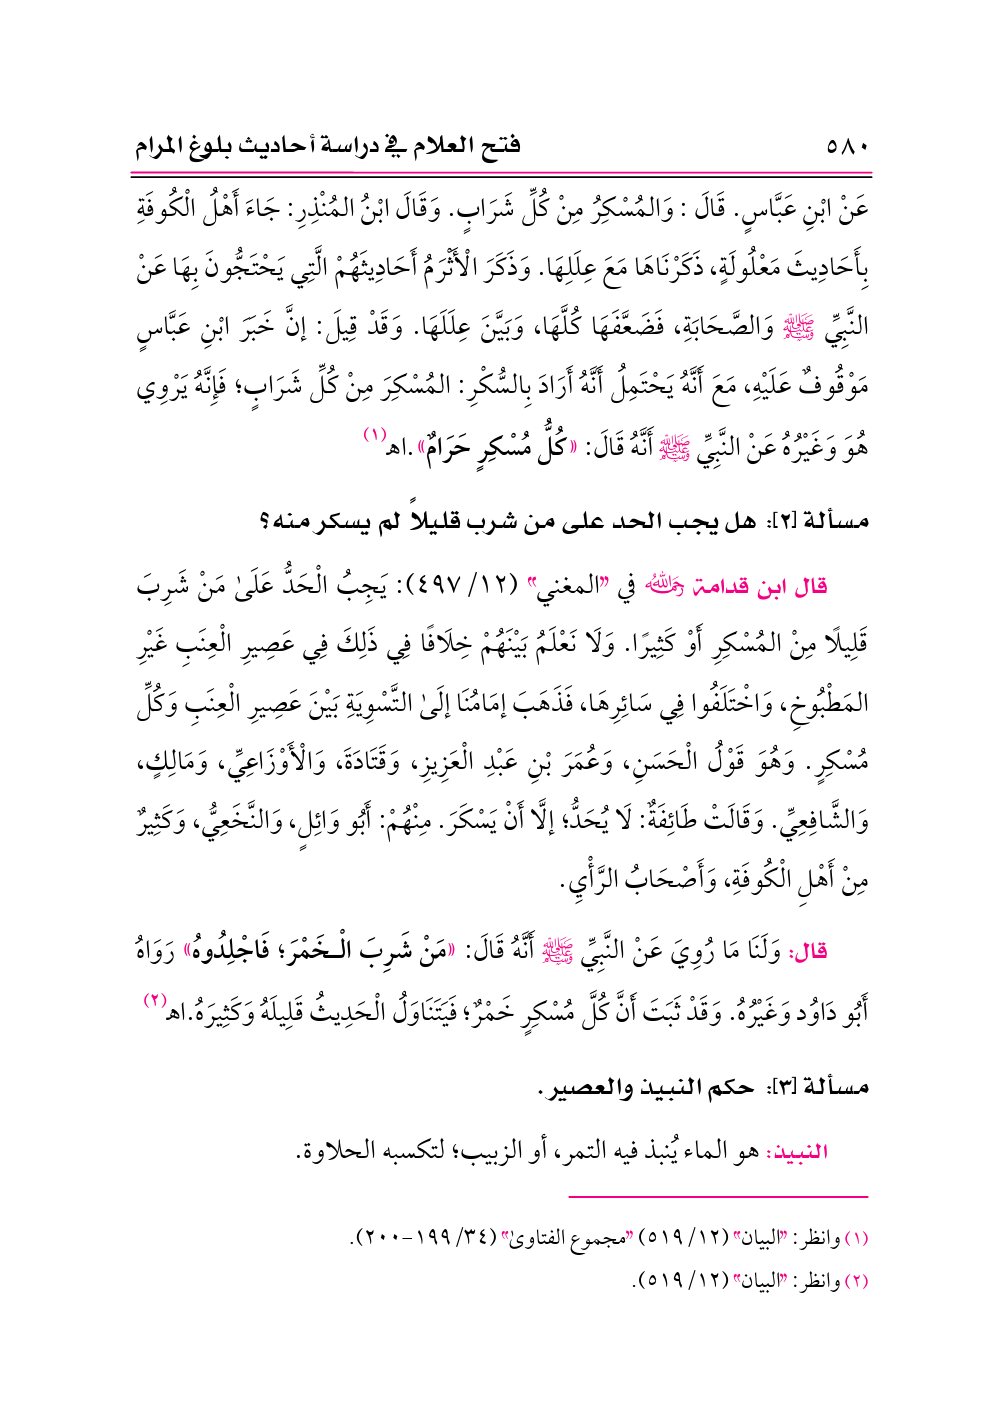 ٥٨٠ فتح العلام في دراسة أحاديث بلوغ المرام
عَنْ ابْنِ عَبَّاسٍ. قَالَ : وَالمُسْكِرُ مِنْ كُلِّ شَرَابٍ. وَقَالَ ابْنُ المُنْذِرِ: جَاءَ أَهْلُ الْكُوفَةِ
بِأَحَادِيثَ مَعْلُولَةٍ، ذَكَرْنَاهَا مَعَ عِلَلِهَا. وَذَكَرَ الْأَثْرَمُ أَحَادِيثَهُمْ الَّتِي يَحْتَجُّونَ بِهَا عَنْ
النَّبِيِّ ﷺ وَالصَّحَابَةِ، فَضَعَّفَهَا كُلَّهَا، وَبَيَّنَ عِلَلَهَا. وَقَدْ قِيلَ: إنَّ خَبَرَ ابْنِ عَبَّاسٍ
مَوْقُوفٌ عَلَيْهِ، مَعَ أَنَّهُ يَحْتَمِلُ أَنَّهُ أَرَادَ بِالسُّكْرِ: المُسْكِرَ مِنْ كُلِّ شَرَابٍ؛ فَإِنَّهُ يَرْوِي
هُوَ وَغَيْرُهُ عَنْ النَّبِيِّ ﷺ أَنَّهُ قَالَ: «كُلُّ مُسْكِرٍ حَرَامٌ».اهـ(١)
مسألة [٢]: هل يجب الحد على من شرب قليلاً لم يسكر منه؟
قال ابن قدامة رحمه الله في "المغني" (١٢/ ٤٩٧): يَجِبُ الْحَدُّ عَلَىٰ مَنْ شَرِبَ
قَلِيلًا مِنْ المُسْكِرِ أَوْ كَثِيرًا. وَلَا نَعْلَمُ بَيْنَهُمْ خِلَافًا فِي ذَلِكَ فِي عَصِيرِ الْعِنَبِ غَيْرِ
المَطْبُوخِ، وَاخْتَلَفُوا فِي سَائِرِهَا، فَذَهَبَ إمَامُنَا إلَىٰ التَّسْوِيَةِ بَيْنَ عَصِيرِ الْعِنَبِ وَكُلِّ
مُسْكِرٍ. وَهُوَ قَوْلُ الْحَسَنِ، وَعُمَرَ بْنِ عَبْدِ الْعَزِيزِ، وَقَتَادَةَ، وَالْأَوْزَاعِيِّ، وَمَالِكٍ،
وَالشَّافِعِيِّ. وَقَالَتْ طَائِفَةٌ: لَا يُحَدُّ؛ إلَّا أَنْ يَسْكَرَ. مِنْهُمْ: أَبُو وَائِلٍ، وَالنَّخَعِيُّ، وَكَثِيرٌ
مِنْ أَهْلِ الْكُوفَةِ، وَأَصْحَابُ الرَّأْيِ.
قال: وَلَنَا مَا رُوِيَ عَنْ النَّبِيِّ ﷺ أَنَّهُ قَالَ: «مَنْ شَرِبَ الْـخَمْرَ؛ فَاجْلِدُوهُ» رَوَاهُ
أَبُو دَاوُد وَغَيْرُهُ. وَقَدْ ثَبَتَ أَنَّ كُلَّ مُسْكِرٍ خَمْرٌ؛ فَيَتَنَاوَلُ الْحَدِيثُ قَلِيلَهُ وَكَثِيرَهُ.اهـ(٢)
مسألة [٣]: حكم النبيذ والعصير.
النبيذ: هو الماء يُنبذ فيه التمر، أو الزبيب؛ لتكسبه الحلاوة.
(١) وانظر: "البيان" (١٢/ ٥١٩) "مجموع الفتاوىٰ" (٣٤/ ١٩٩-٢٠٠).
(٢) وانظر: "البيان" (١٢/ ٥١٩).